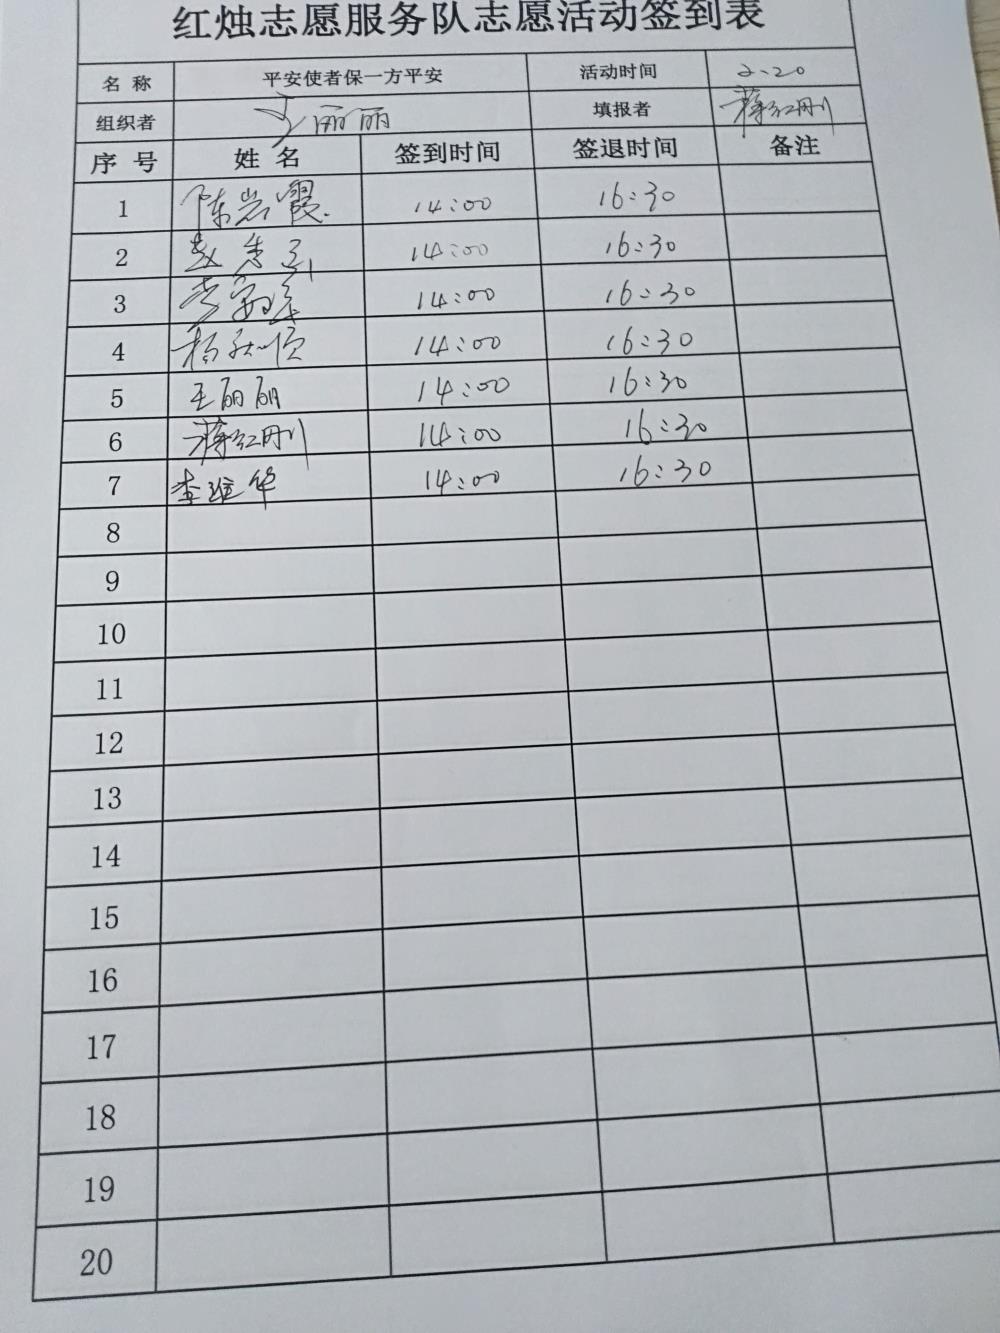 红烛志愿服务队志愿活动签到表
名 称 平安使者保一方平安 活动时间 2.20
组织者 王丽丽 填报者 蒋红刚
序 号 姓 名 签到时间 签退时间 备注
1 陈岩霞 14:00 16:30
2 赵 14:00 16:30
3 李 14:00 16:30
4 杨 14:00 16:30
5 王丽丽 14:00 16:30
6 蒋红刚 14:00 16:30
7 李维华 14:00 16:30
8
9
10
11
12
13
14
15
16
17
18
19
20